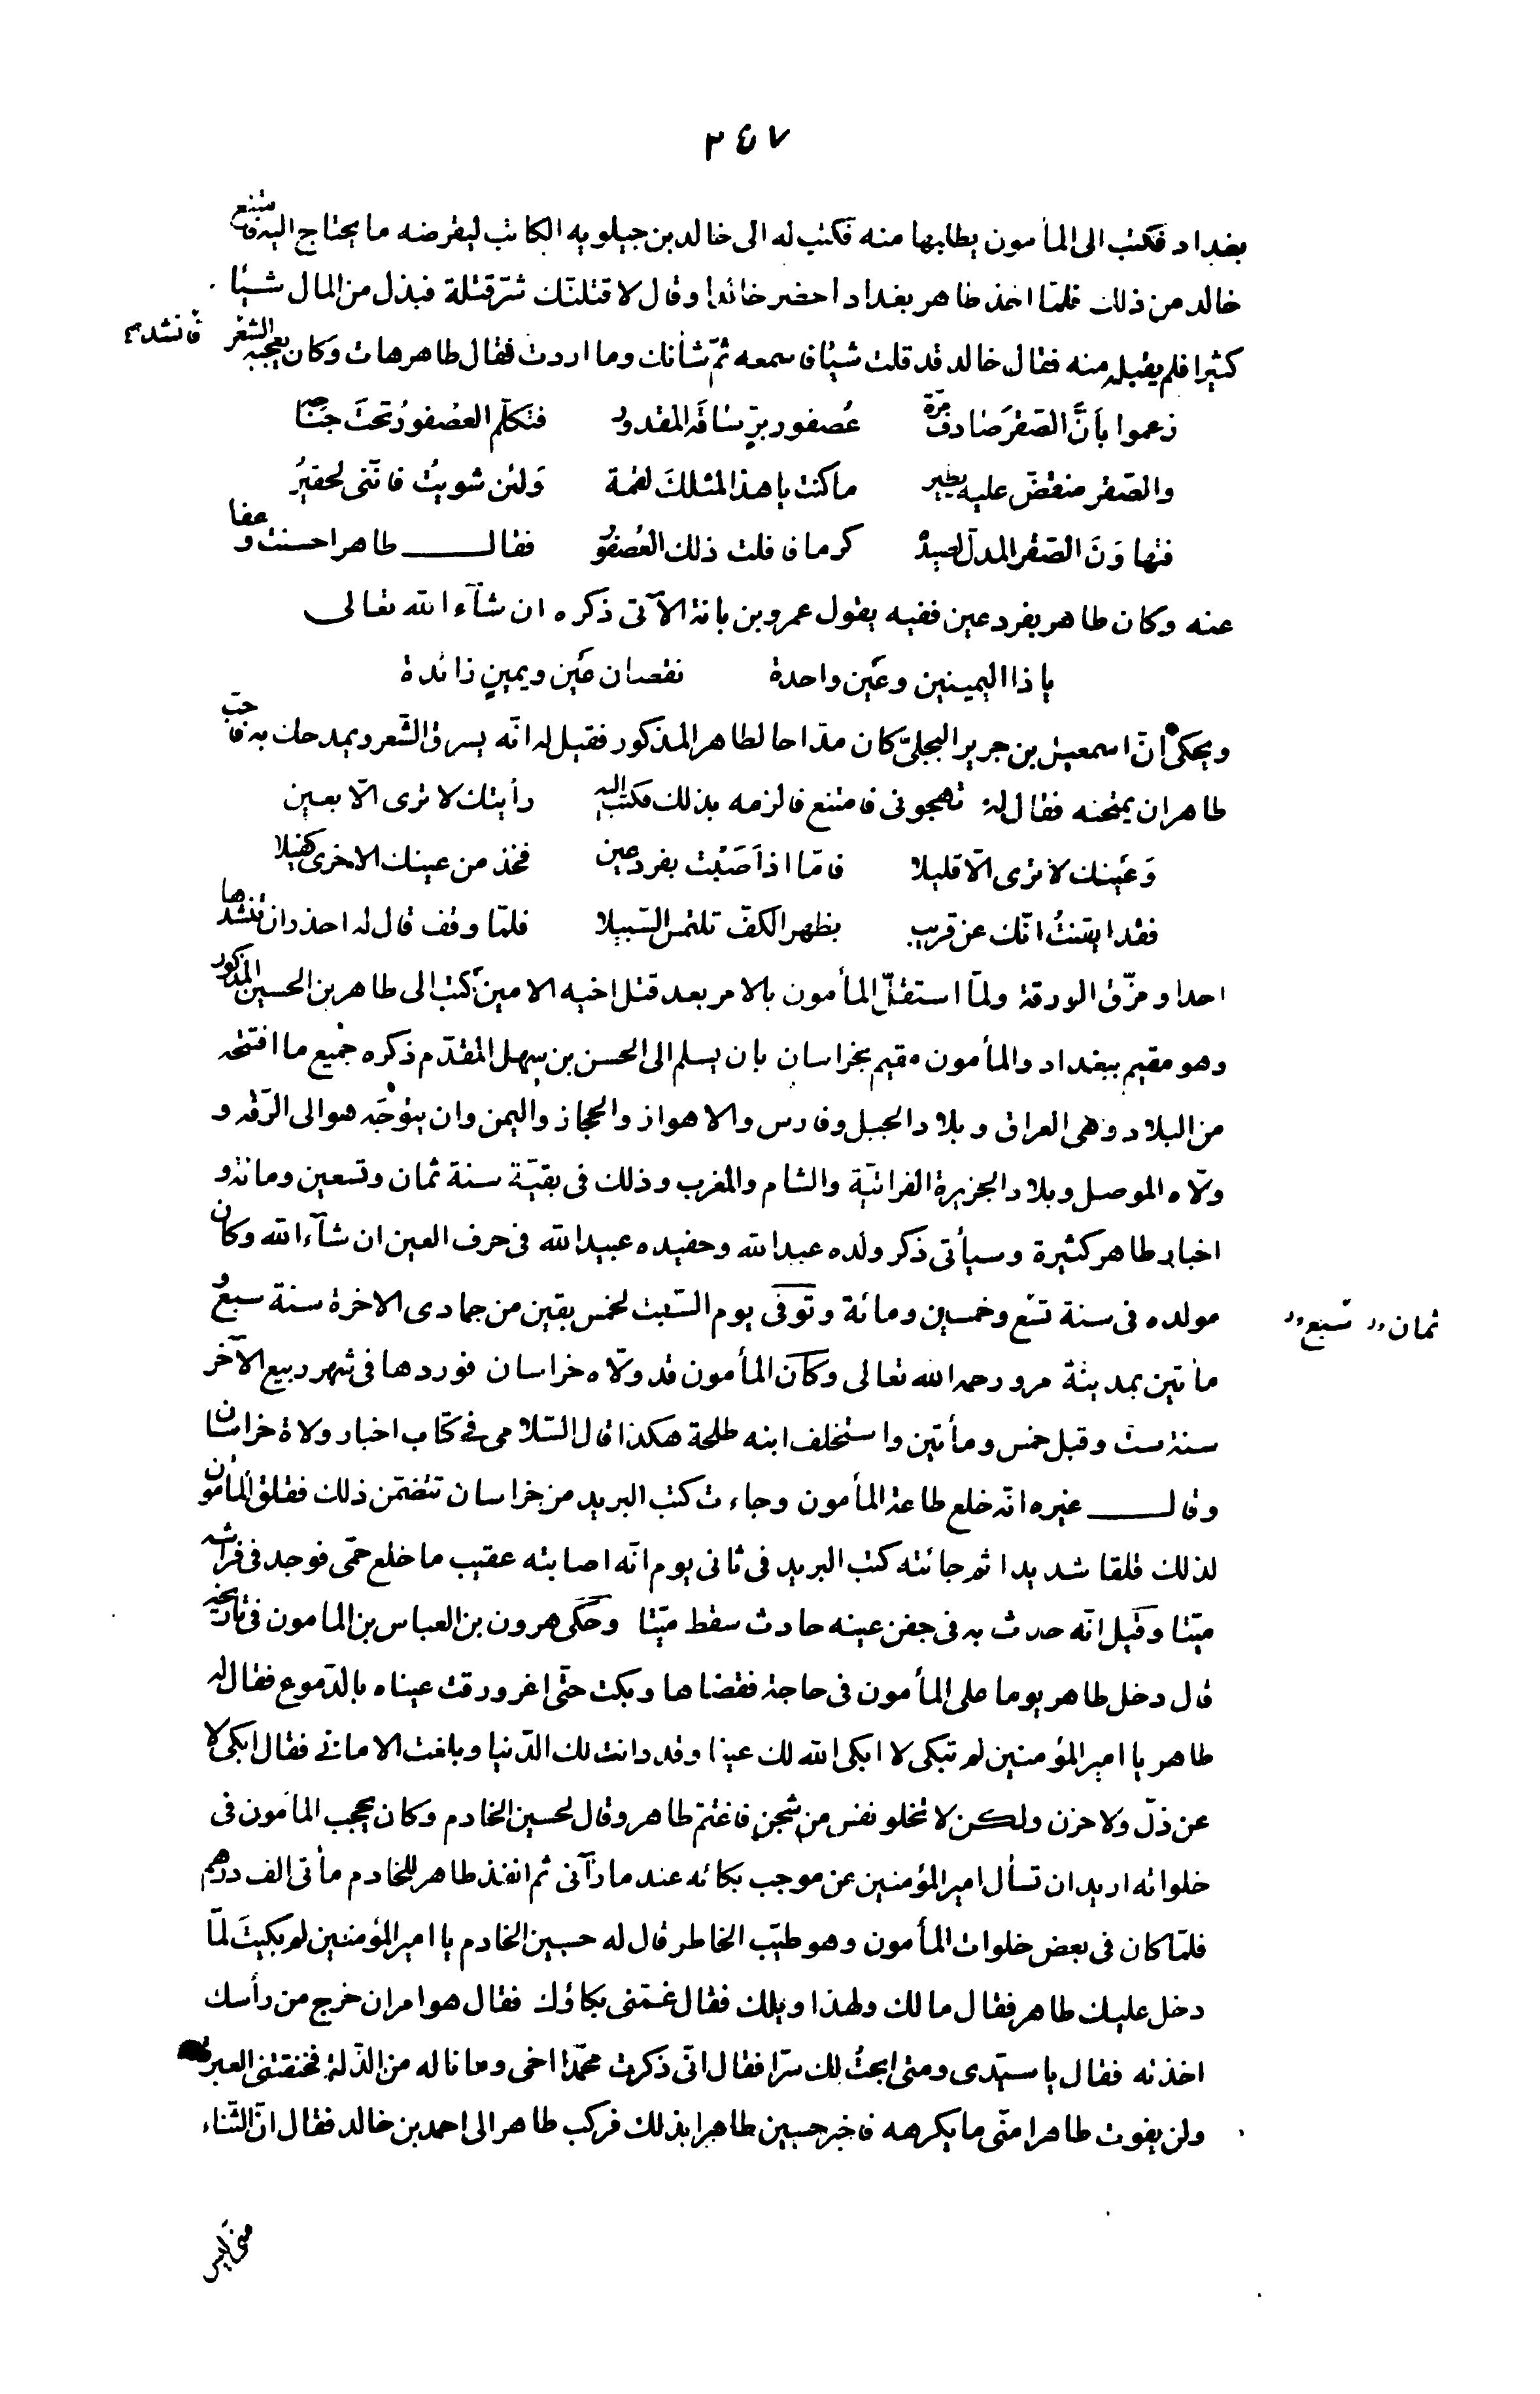 ٢٤٧
بغداد فكتب الى المأمون يطلبها منه فكتب له الى خالد بن جيلويه الكاتب ليقرضه ما يحتاج اليه فامتنع
خالد من ذلك فلما اخذ طاهر بغداد احضر خالدا وقال لاقتلنّك شرّ قتلة فبذل من المال شيئا
كثيرا فلم يقبله منه فقال خالد قد قلت شيئا فاسمعه ثمّ شأنك وما اردت فقال طاهر هات وكان يعجبه الشعر فانشده
زعموا بأنّ الصّقر صادف مرّة عُصفور برّ ساقه المقدور فتكلّم العصفور تحت جناحه
والصّقر منقضّ عليه يطير ما كنت يا هذا لمثلك لقمة وَلئن شويتُ فانّني لحقيرُ
فتهاوَنَ الصّقر المدلّ بصيده كرما فافلت ذلك العُصفور فقال طاهر احسنت وعفا
عنه وكان طاهر بفرد عين ففيه يقول عمرو بن بانة الآتى ذكره ان شآء الله تعالى
يا ذا اليمينين وعَين واحدة نقصان عَين ويمينٍ زائدة
ويحكى انّ اسمعيل بن جرير البجلىّ كان مدّاحا لطاهر المذكور فقيل له انّه يسرق الشّعر ويمدحك به فاحبّ
طاهر ان يمتحنه فقال له تهجونى فامتنع فالزمه بذلك فكتب اليه رأيتك لا ترى الّا بعين
وَعَينك لا ترى الّا قليلا فامّا اذ اَصَبْت بفرد عين فخذ من عينك الاخرى كفيلا
فقد ايقنتُ انّك عن قريب بظهر الكفّ تلتمس السّبيلا فلمّا وقف قال له احذر ان تنشدها
احدا ومزّق الورقة ولمّا استقلّ المأمون بالامر بعد قتل اخيه الامين كتب الى طاهر بن الحسين المذكور
وهو مقيم ببغداد والمأمون مقيم بخراسان بان يسلم الى الحسن بن سهل المقدّم ذكره جميع ما افتتحه
من البلاد وهى العراق وبلاد الجبل وفارس والاهواز والحجاز واليمن وان يتوجّه هو الى الرّقّة و
ولّاه الموصل وبلاد الجزيرة الفراتيّة والشام والمغرب وذلك فى بقيّة سنة ثمان وتسعين ومائة و
اخبار طاهر كثيرة وسيأتى ذكر ولده عبد الله وحفيده عبيد الله فى حرف العين ان شآء الله وكان
مولده فى سنة تسع وخمسين ومائة وتوفى يوم السّبت لخمس بقين من جمادى الاخرة سنة سبع و
ثمان سبع
مأتين بمدينة مرو رحمه الله تعالى وكان المأمون قد ولّاه خراسان فوردها فى شهر ربيع الآخر
سنة ست وقيل خمس ومأتين واستخلف ابنه طلحة هكذا قال السّلامى فى كتاب اخبار ولاة خراسان
وقال غيره انّه خلع طاعة المأمون وجاءت كتب البريد من خراسان تتضمّن ذلك فقلق المأمون
لذلك قلقا شديدا ثم جائته كتب البريد فى ثانى يوم انّه اصابته عقيب ما خلع حمّى فوجد فى فراشه
ميّتا وقيل انّه حدث به فى جفن عينه حادث سقط ميّتا وحكى هرون بن العباس بن المامون فى تاريخه
قال دخل طاهر يوما على المأمون فى حاجة فقضاها وبكت حتّى اغرورقت عيناه بالدّموع فقال له
طاهر يا امير المؤمنين لم تبكى لا ابكى الله لك عينا وقد دانت لك الدّنيا وبلغت الامانى فقال ابكى لا
عن ذلّ ولا حزن ولكن لا تخلو نفس من شجن فاغتمّ طاهر وقال لحسين الخادم وكان يحجب المأمون فى
خلواته اريد ان تسأل امير المؤمنين عن موجب بكائه عند ما رآنى ثم انفذ طاهر للخادم مأتى الف درهم
فلمّا كان فى بعض خلوات المأمون وهو طيّب الخاطر قال له حسين الخادم يا امير المؤمنين لم بكيتَ لمّا
دخل عليك طاهر فقال مالك ولهذا ويلك فقال غمّنى بكاؤك فقال هو امر ان خرج من رأسك
اخذته فقال يا سيّدى ومتى ابحتُ لك سرّا فقال انّى ذكرت محمّدا اخى وما ناله من الذّلة فخنقتنى العبرة
ولن يفوت طاهرا منّى ما يكرهه فاخبر حسين طاهرا بذلك فركب طاهر الى احمد بن خالد فقال انّ الثّناء
منى ليس